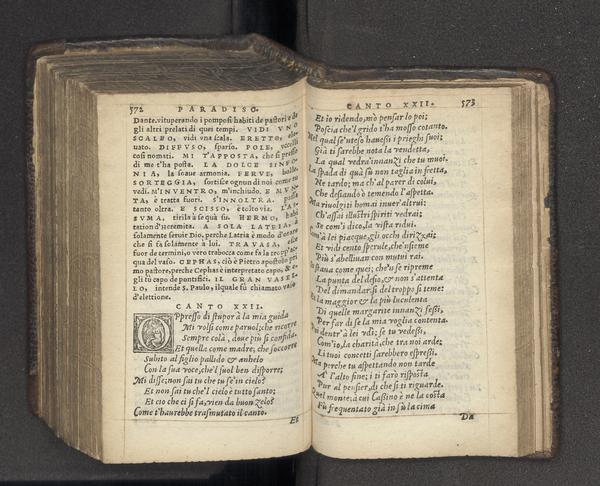 572 PARADISO.
Dante. vituperando i pomposi habiti de pastori e de
gli altri prelati di quei tempi. VIDI VNO
SCALEO, vidi vna scala. ERETTO, ele-
uato. DIFFVSO, sparso. POLE, vccelli
cosi nomati. MI T'APPOSTA, che si presso
di me t'ha posta. LA DOLCE SINFO-
NIA, la soaue armonia. FERVE, bolle.
SORTEGGIA, sortisce ognun di noi come tu
vedi. M'INVENTRO, m'inchiudo. E MVN-
TA, è tratta fuori. S'INNOLTRA. passa
tanto oltra. E SCISSO, è tolto via. L'AS-
SVMA, tirila à se quà su. HERMO, habi
tation d'Heremita. A SOLA LATRIA, à
solamente seruir Dio, perche Latria è modo d'orare
che si fa solamente à lui. TRAVASA, esce
fuor de termini, o vero trabocca come fa la troppa ac
qua del vaso. CEPHAS, ciò è Pietro apostolo pri
mo pastore, perche Cephas è interpretato capo, & e-
gli fù capo de pontefici. IL GRAN VASEL
LO, intende S. Paulo, ilquale fù chiamato vaso
d'elettione.
CANTO XXII.
OPpresso di stupor à la mia guida
Mi volsi come paruol; che ricorre
Sempre colà, doue più si confida.
Et quella come madre, che soccorre
Subito al figlio pallido & anhelo
Con la sua voce, che'l suol ben disporre;
Mi disse; non sai tu che tu se'in cielo?
Et non sai tu che'l cielo è tutto santo;
Et ciò che ci si fa, vien da buon zelo?
Come t'haurebbe trasmutato il canto.
Et
CANTO XXII. 573
Et io ridendo, mò pensar lo poi;
Poscia che'l grido t'ha mosso cotanto.
Nel qual se'nteso hauessi i prieghi suoi;
Già ti sarebbe nota la vendetta,
La qual vedra'innanzi che tu muoi.
La spada di quà sù non taglia in fretta,
Ne tardo; ma ch'al parer di colui,
Che desiando ò temendo l'aspetta.
Ma riuolgiti homai inuer'altrui;
Ch'assai illustri spiriti vedrai;
Se com'i dico, la vista ridui.
Com'à lei piacque, gli occhi dirizzai;
Et vidi cento sperule, che'nsieme
Più s'abelliuan con mutui rai.
Io staua come quei; che'n se ripreme
La punta del desio, & non s'attenta
Del dimandar; si del troppo si teme:
Et la maggior & la più luculenta
Di quelle margarite innanzi fessi,
Per far di se la mia voglia contenta.
Poi dentr'à lei vdì; se tu vedessi,
Com'io, la charità, che tra noi arde;
Li tuoi concetti sarebbero espressi.
Ma perche tu aspettando non tarde
A l'alto fine; i ti farò risposta
Pur al pensier, di che si ti riguarde.
Quel monte; à cui Cassino è ne la costa
Fù frequentato già in sù la cima
Da